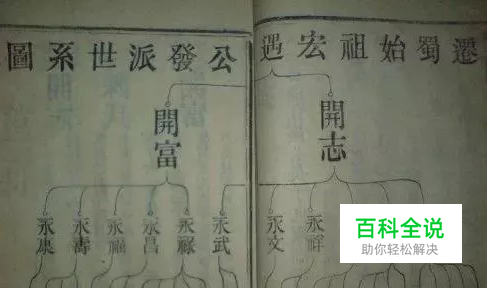 遷蜀始祖宏遇公發派世系圖
開志
開富
永祥
永文
永武
永祿
永昌
永福
永壽
永康
百科全说
助你轻松解决